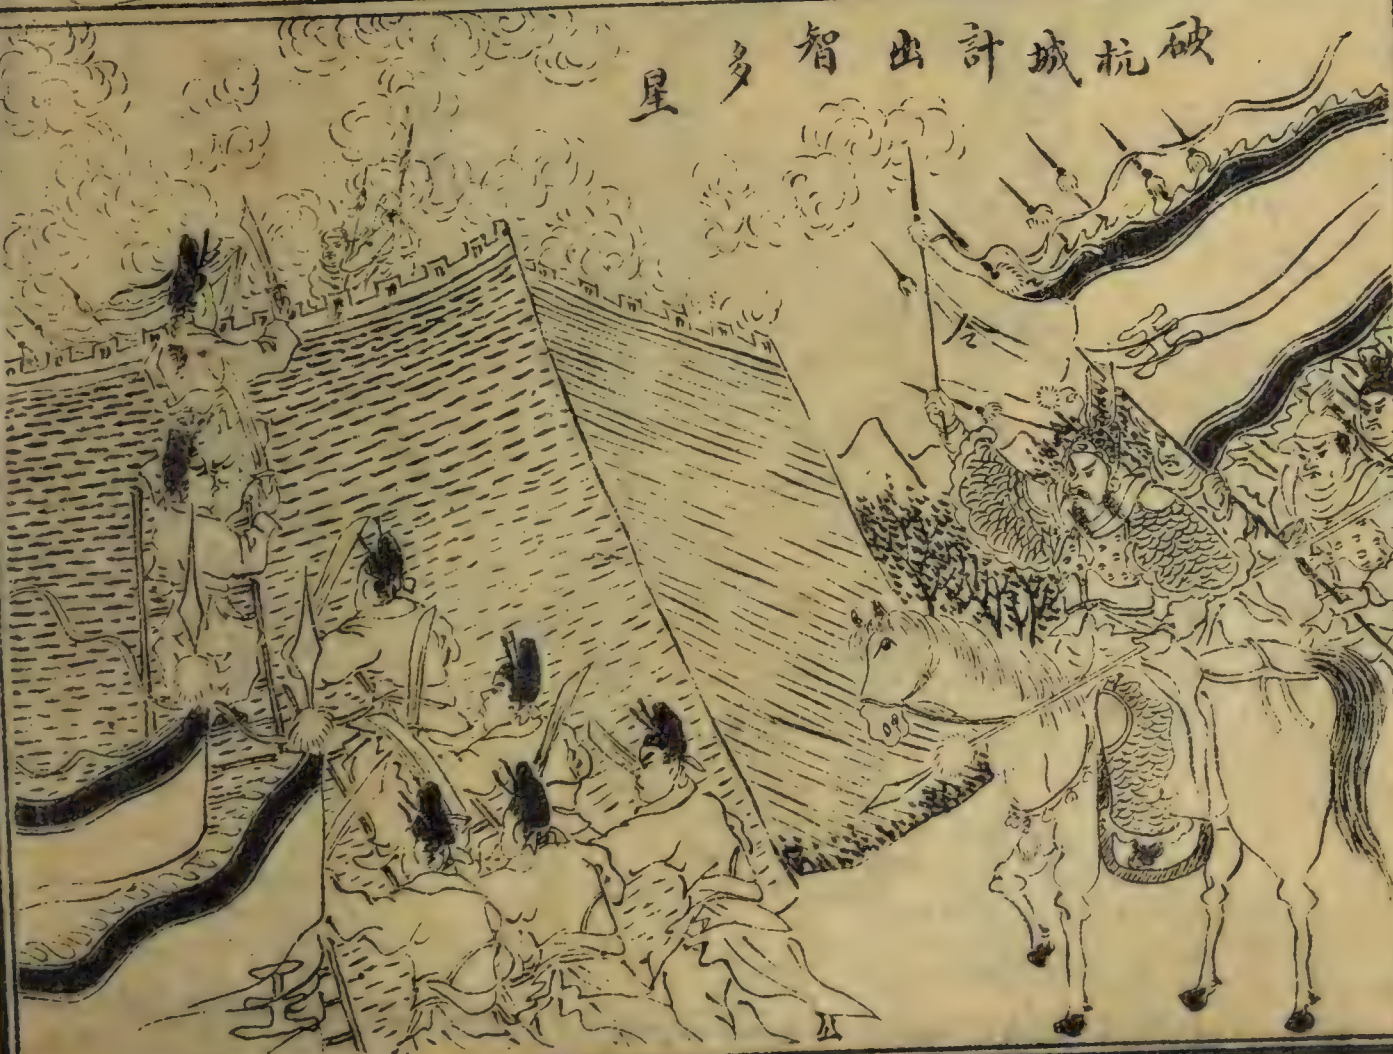 破杭城計出智多星